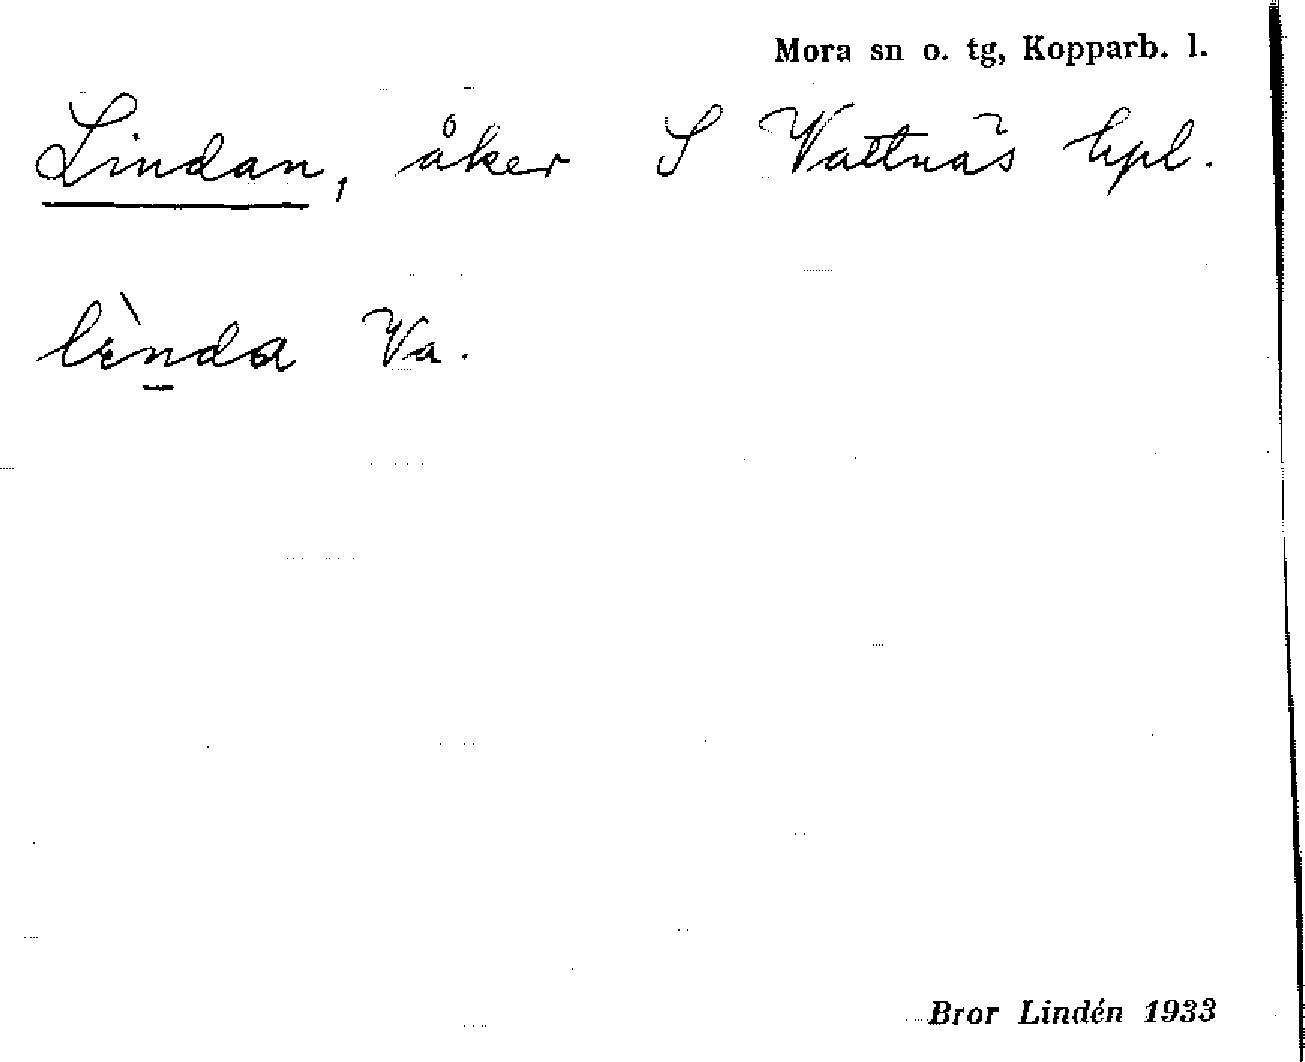 Mora sn o. tg, Kopparb. l.
Lindan, åker S Vattnäs hpl.
lìnda Va.
Bror Lindén 1933